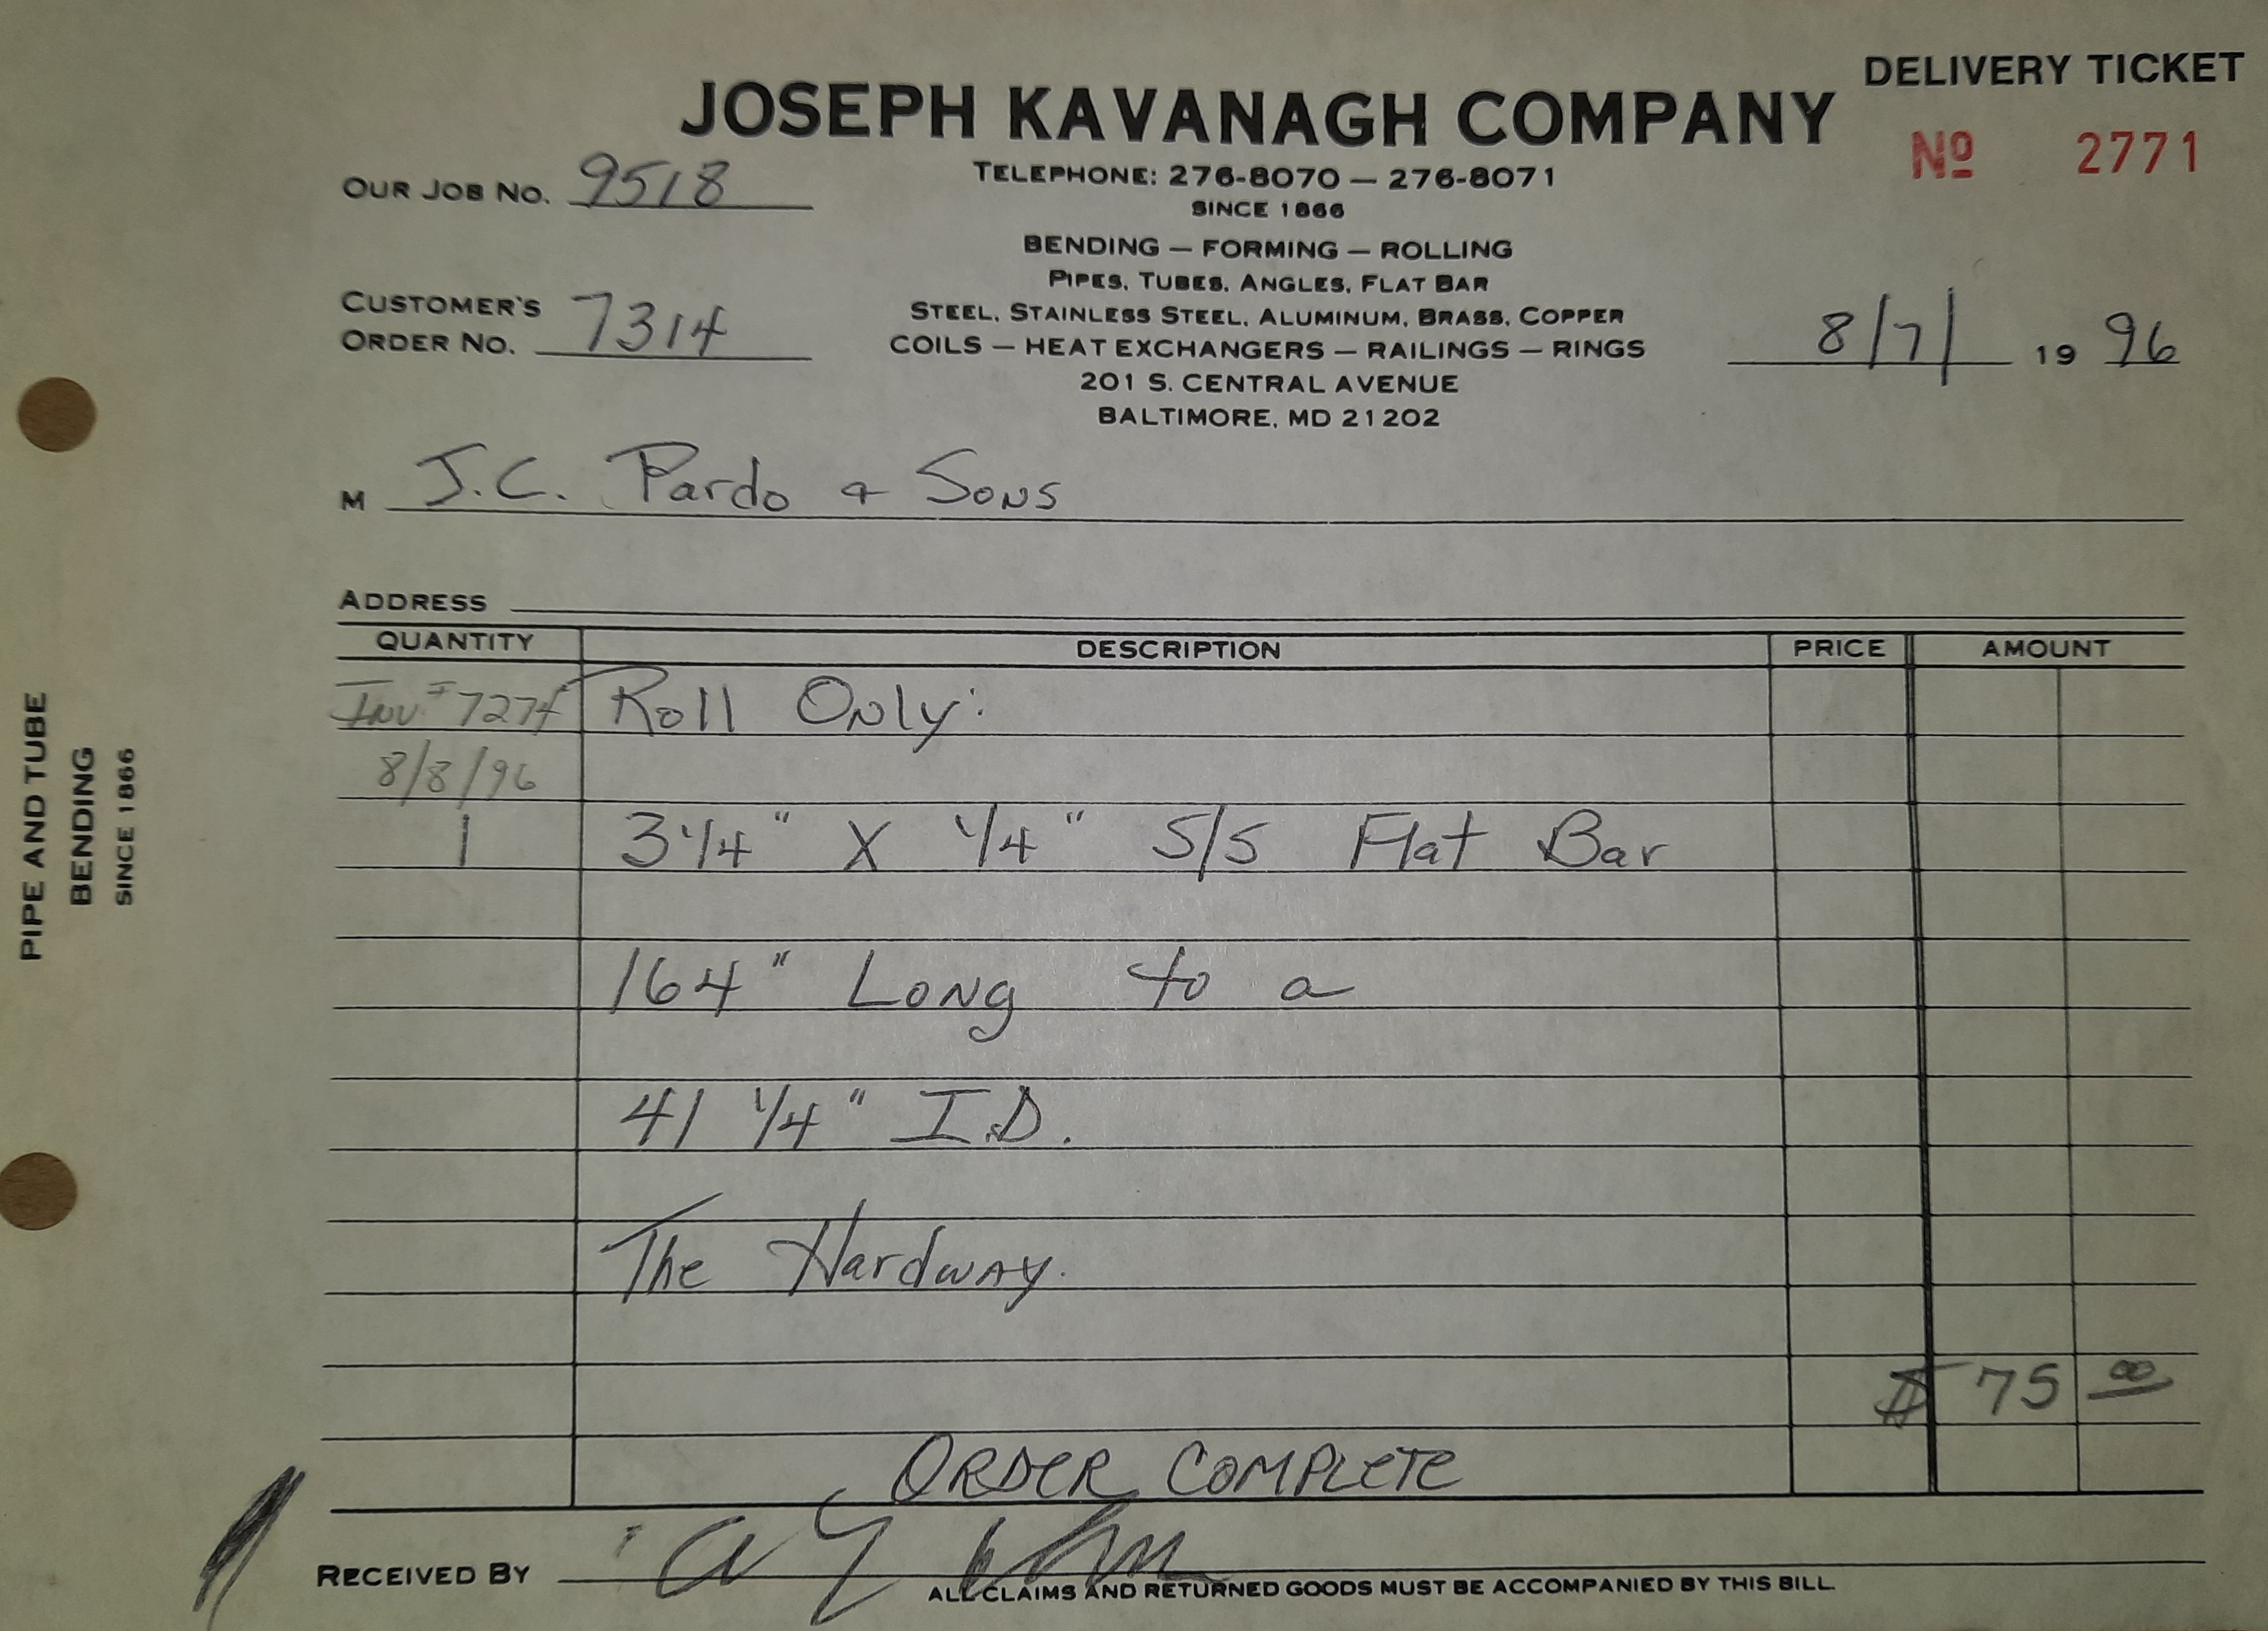 DELIVERY TICKET
JOSEPH KAVANAGH COMPANY
Nº 2771
OUR JOB NO. 9518
TELEPHONE: 276-8070 — 276-8071
SINCE 1866
BENDING — FORMING — ROLLING
PIPES, TUBES, ANGLES, FLAT BAR
CUSTOMER'S ORDER NO. 7314
STEEL, STAINLESS STEEL, ALUMINUM, BRASS, COPPER
COILS — HEAT EXCHANGERS — RAILINGS — RINGS
8/7/ 19 96
201 S. CENTRAL AVENUE
BALTIMORE, MD 21202
M J.C. Pardo & Sons
ADDRESS
QUANTITY DESCRIPTION PRICE AMOUNT
Inv # 7274 Roll Only:
8/8/96
1 3 1/4" X 1/4" S/S Flat Bar
164" Long to a
41 1/4" I.D.
The Hardway.
$ 75 00
ORDER COMPLETE
RECEIVED BY
ALL CLAIMS AND RETURNED GOODS MUST BE ACCOMPANIED BY THIS BILL.
PIPE AND TUBE
BENDING
SINCE 1866